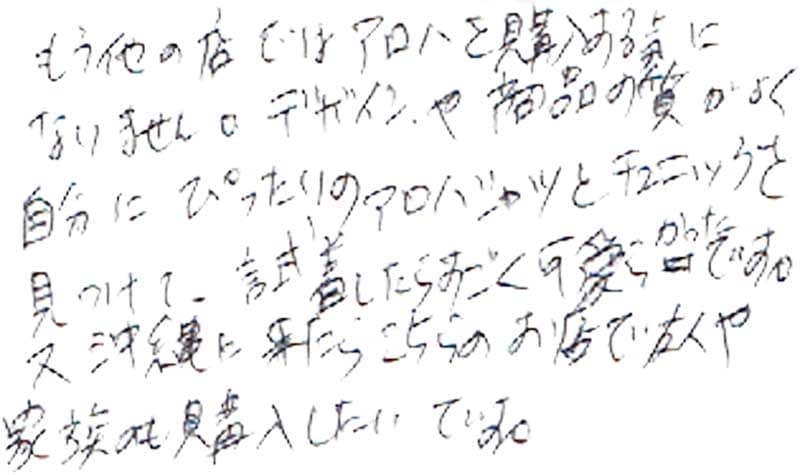 もう他の店ではアロハを購入する気に
なりません。デザインや商品の質がよく
自分にぴったりのアロハシャツとチュニックを
見つけて、試着したらすごく可愛らかったです。
又沖縄に来たらこちらのお店で友人や
家族のも購入したいです。